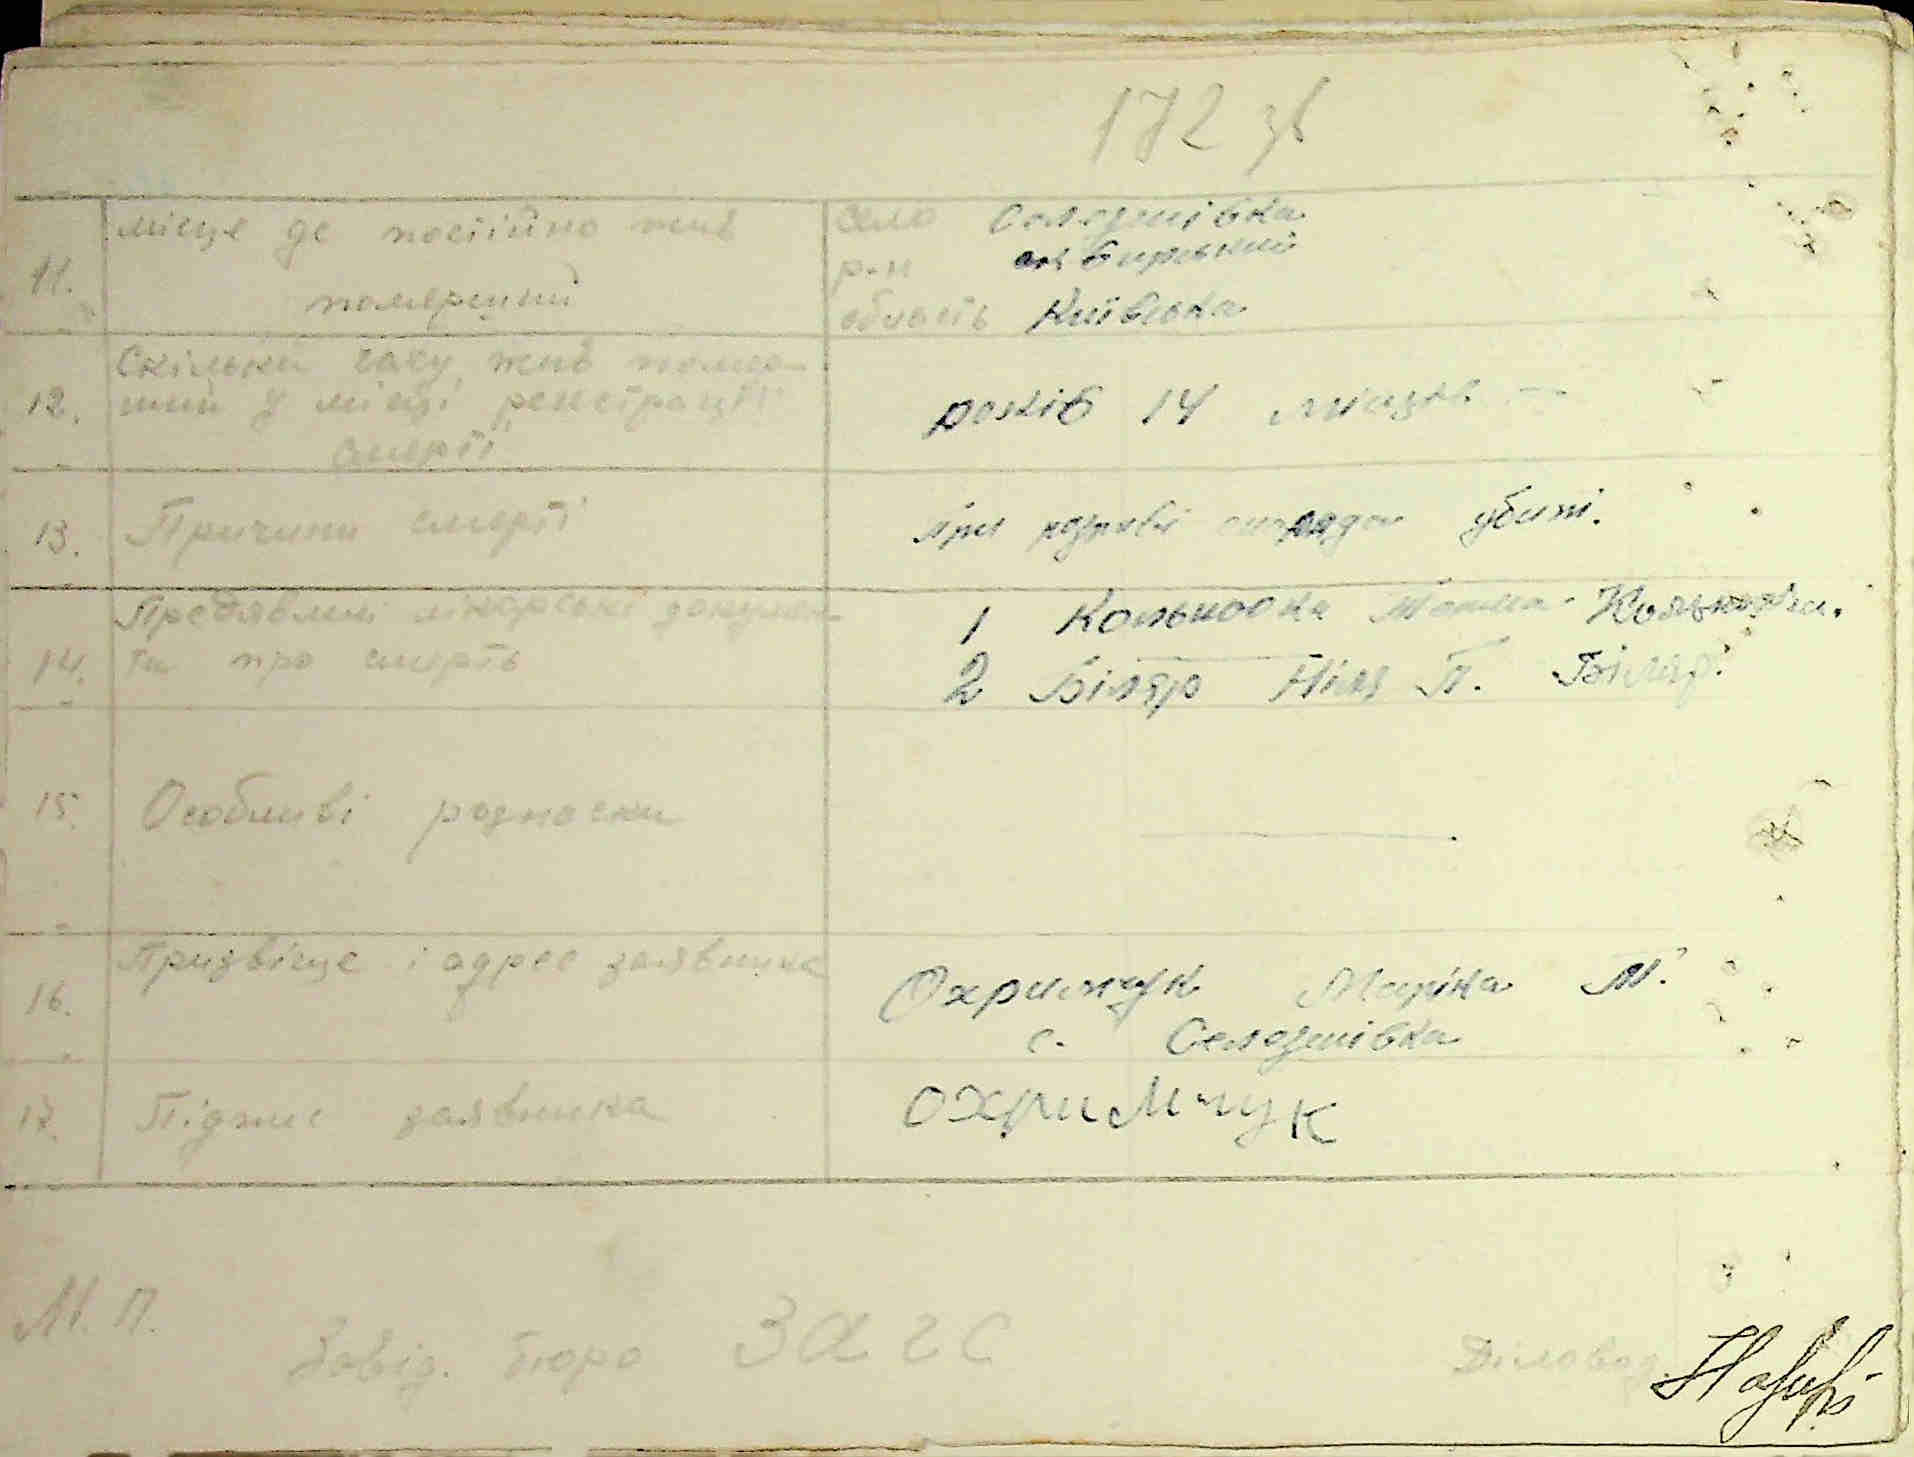 172 зв
11.
місце де постійно жив
померший
село Селезнівка
р-н
область Київська
12.
Скільки часу жив помер-
ший у місці реєстрації
смерті
років 14 місяців —
13.
Причини смерті
При розриві снаряда убиті.
14.
Предявлені лікарські докумен-
ти про смерть
1
2 Біляр Ніна П. Біляр.
15.
Особливі рознаски
16.
Призвіще і адрес заявника
Охримчук Марina М.
с. Селезнівка
17.
Підпис заявника
охримчук
М. П.
Завід. бюро ЗАГС
Діловод